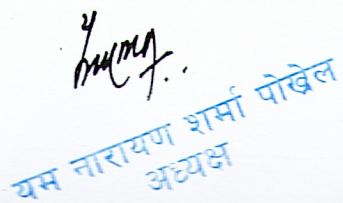 यम नारायण शर्मा पोख्रेल
अध्यक्ष